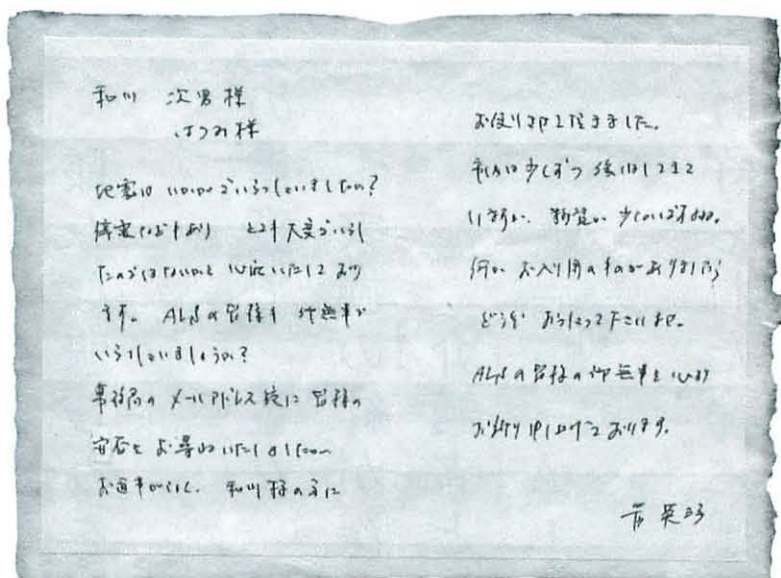 和川 次男様
はつみ様
地震は いかがでいらっしゃいましたか?
停電などもあり とても大変でいらし
たのではないかと 心配いたしており
ます。 ALSの皆様も 御無事で
いらっしゃいましょうか?
事務局の メールアドレス宛に 皆様の
安否を お尋ねいたしましたが
お返事がなく、 和川様の方に
お便りさせて頂きました。
余震は少しずつ
いますが、 少ない
何か お入り用のものがありましたら
どうぞ おっしゃって下さいませ。
ALSの皆様の御無事を 心より
お祈り申し上げております。